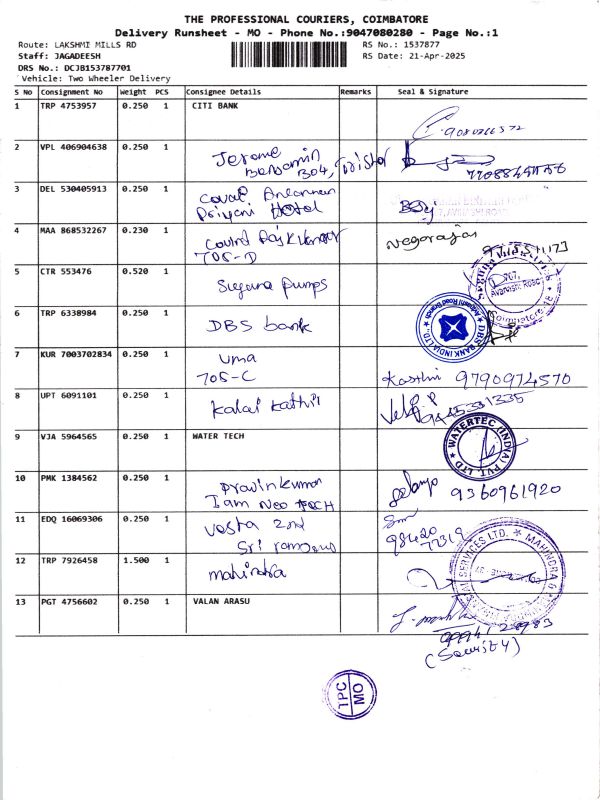 THE PROFESSIONAL COURIERS, COIMBATORE
Delivery Runsheet - MO - Phone No.:9047080280 - Page No.:1
Route: LAKSHMI MILLS RD
RS No.: 1537877
Staff: JAGADEESH
RS Date: 21-Apr-2025
DRS No.: DCJB153787701
Vehicle: Two Wheeler Delivery
S No Consignment No Weight PCS Consignee Details Remarks Seal & Signature
1 TRP 4753957 0.250 1 CITI BANK
2 VPL 406904638 0.250 1 Jerome
Benjamin
B04,
3 DEL 530405913 0.250 1
Priyani Hotel
4 MAA 868532267 0.230 1
705-D
5 CTR 553476 0.520 1 Suguna Pumps
6 TRP 6338984 0.250 1 DBS bank
DBS BANK INDIA LTD.
7 KUR 7003702834 0.250 1 uma
705-C 9790974570
8 UPT 6091101 0.250 1 Kalai Kathir
9 VJA 5964565 0.250 1 WATER TECH
WATERTEC (INDIA) PVT. LTD
10 PMK 1384562 0.250 1 Pravin kumar
I am Neo TECH 9360961920
11 EDQ 16069306 0.250 1 vesta 2nd
98420
77319
12 TRP 7926458 1.500 1 mahindra
13 PGT 4756602 0.250 1 VALAN ARASU
(Security)
TPC
MO